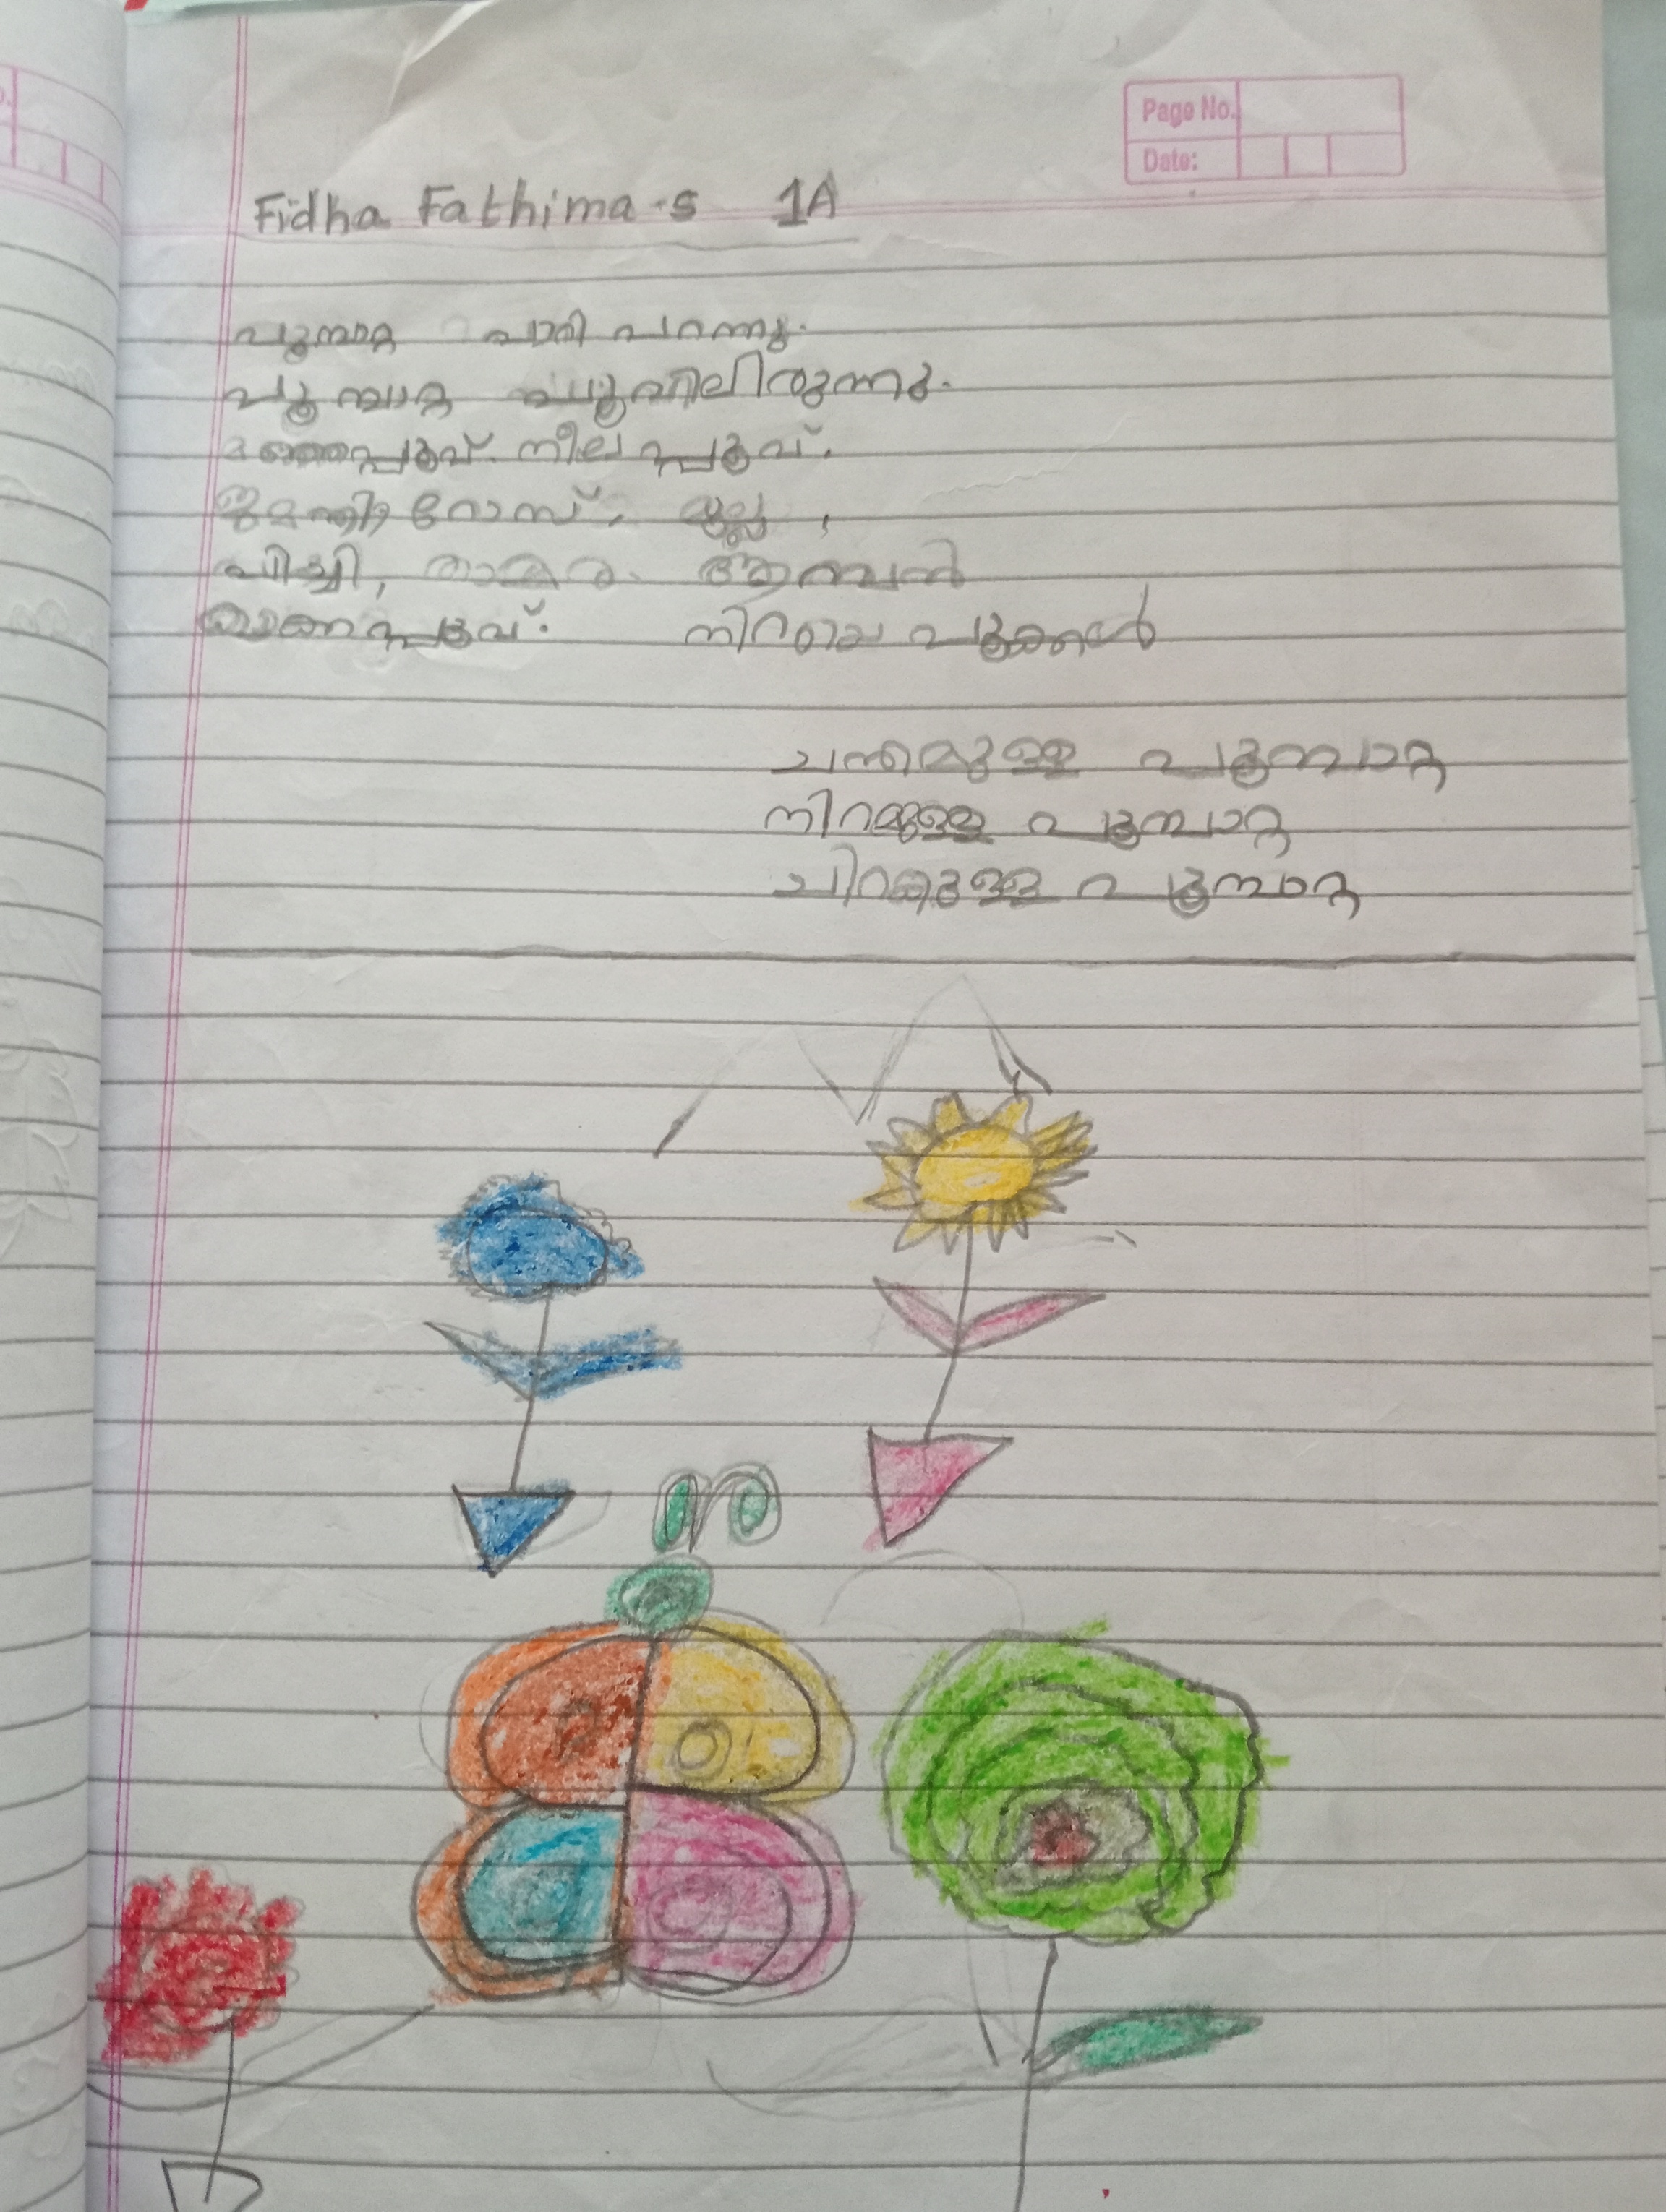 Page No.
Date:
Fidha Fathima.s 1A
പൂമ്പാറ്റ പാറി പറന്നു.
പൂമ്പാറ്റ പൂവിലിരുന്നു.
മഞ്ഞപ്പൂവ്. നീല പ്പൂവ്.
ജമന്തി, റോസ്, മുല്ല,
പിച്ചി, താമര. ആമ്പൽ
നിറയെ പൂക്കൾ
ചന്തമുള്ള പൂമ്പാറ്റ
നിറമുള്ള പൂമ്പാറ്റ
ചിറകുള്ള പൂമ്പാറ്റ